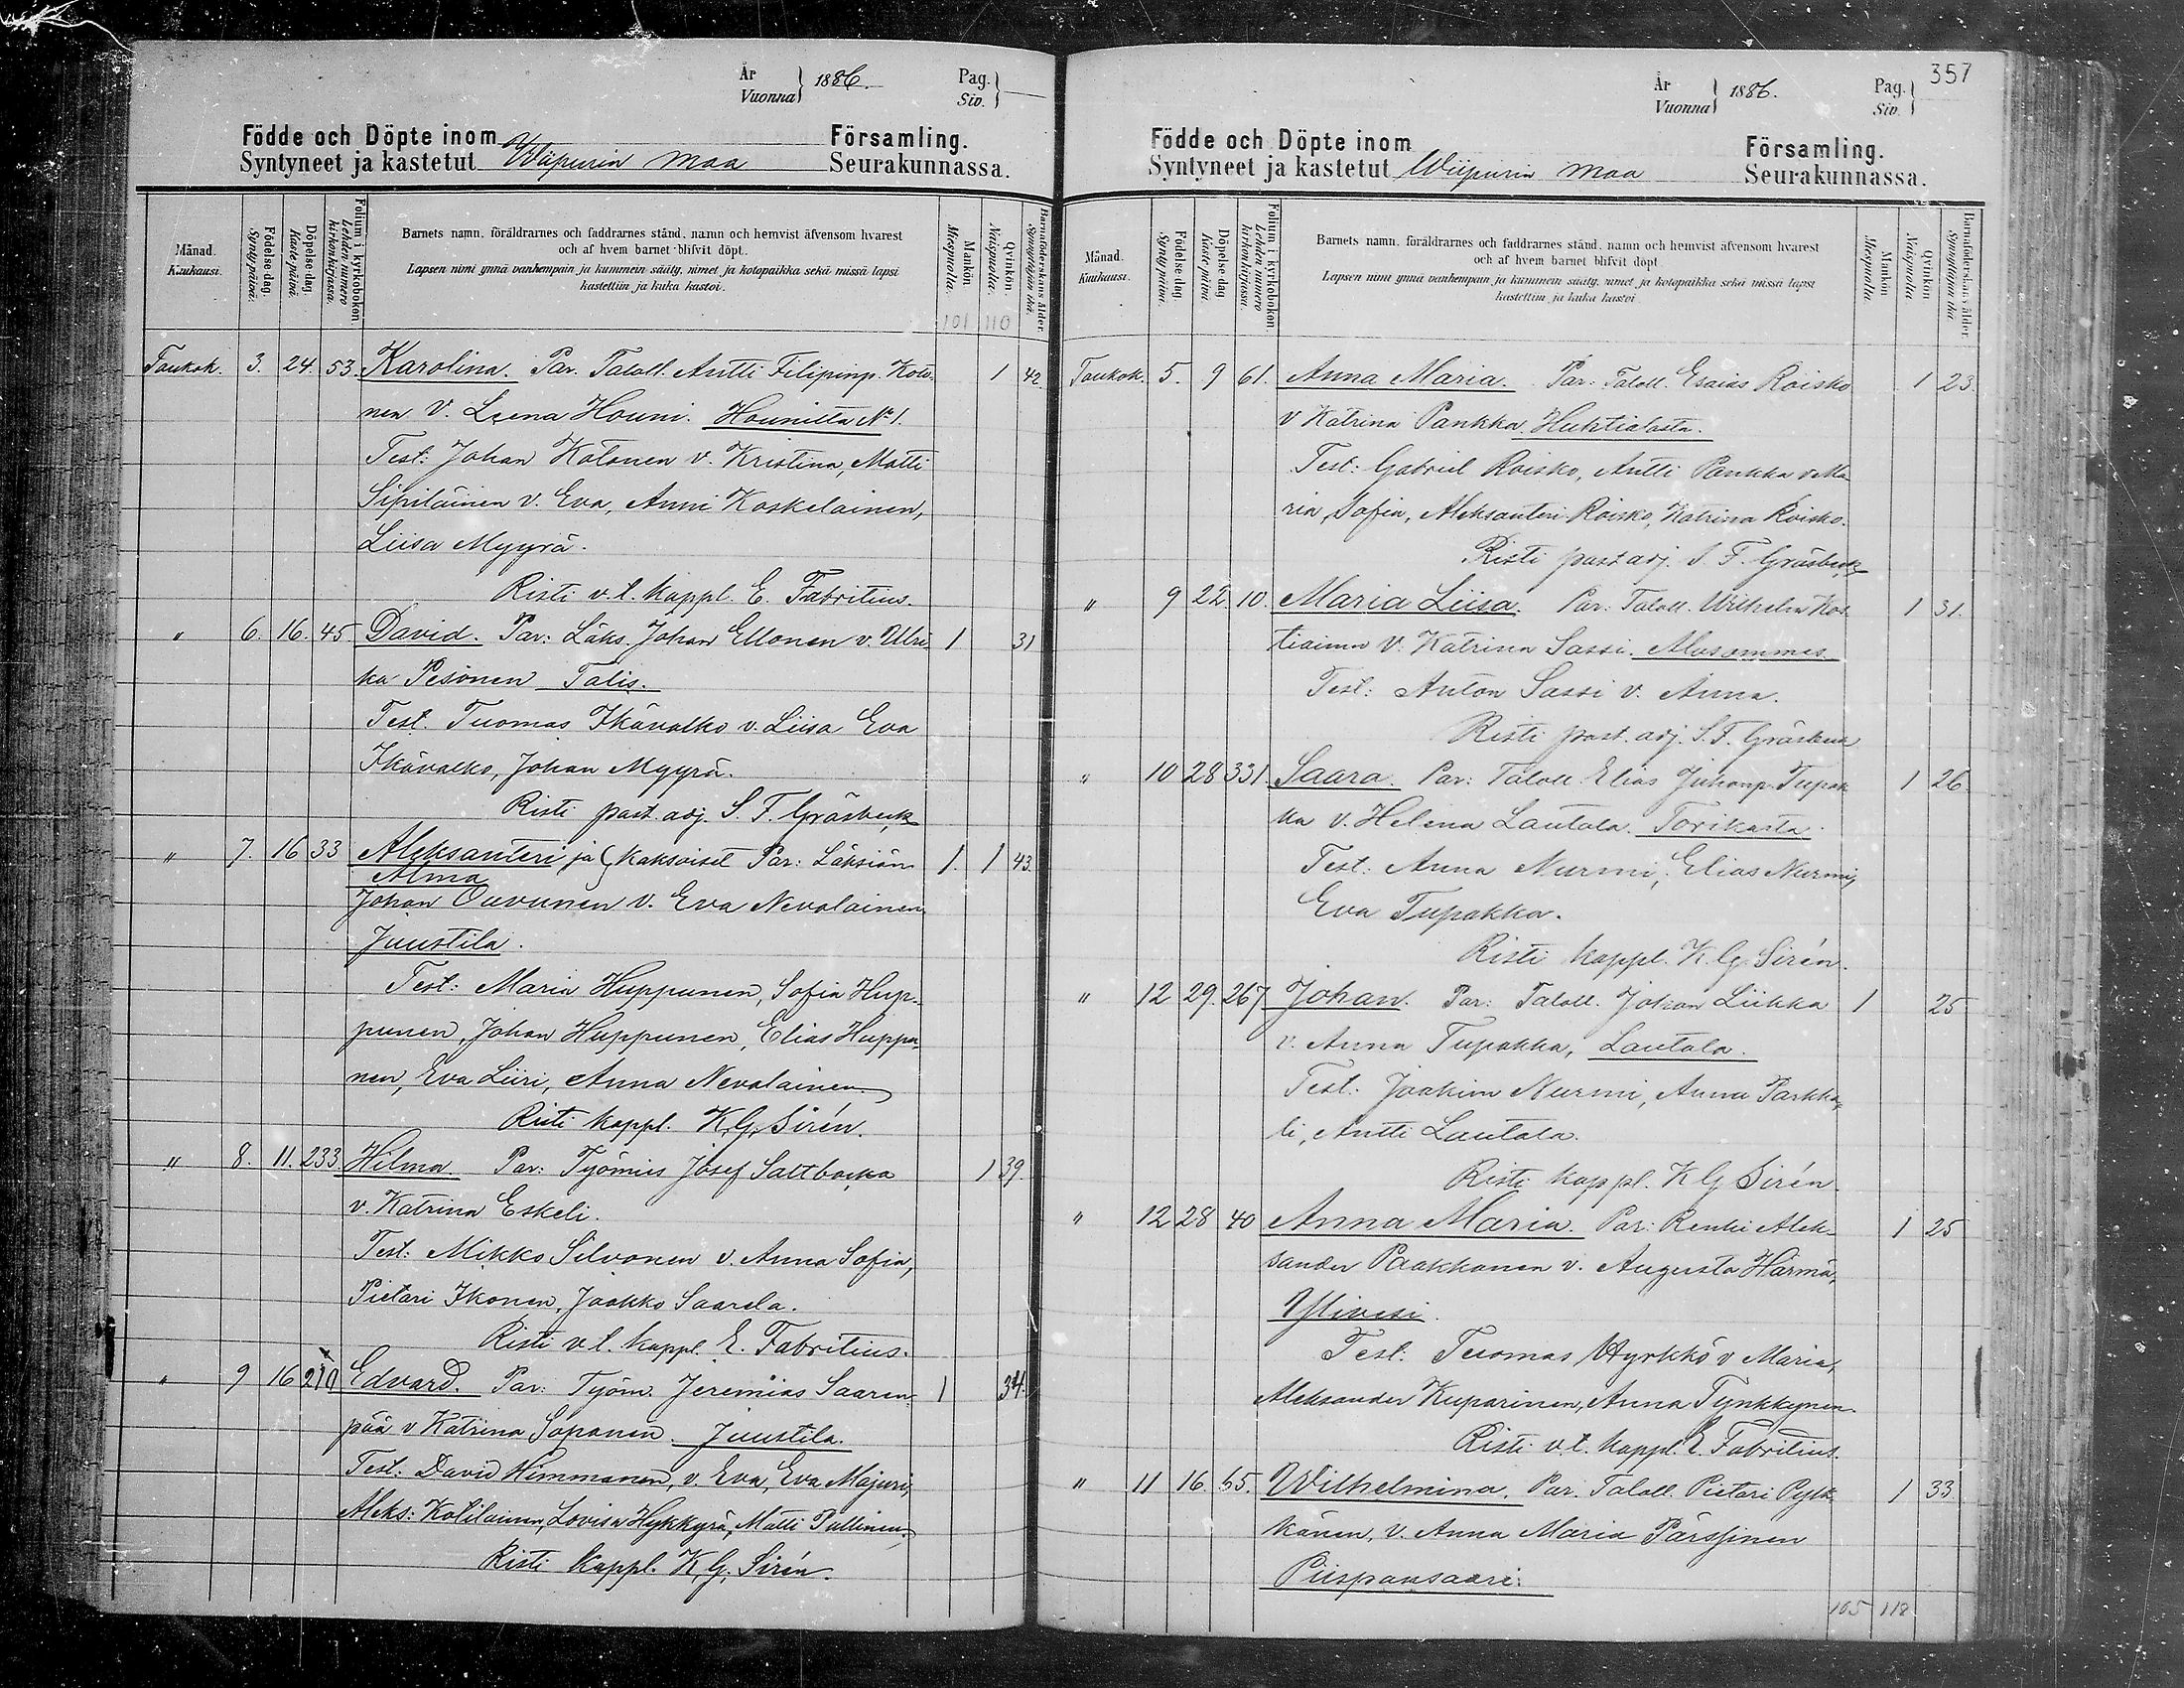 År
Vuonna } 1886. Pag.
Siv. }
Födde och Döpte inom Församling.
Syntyneet ja kastetut Wiipurin maa Seurakunnassa.
Månad.
Kuukausi.
Födelse dag.
Syntypäivä.
Döpelse dag.
Kastepäivä.
Folium i kyrkoboken
Lehden numero
kirkonkirjassa.
Barnets namn, föräldrarnes och faddrarnes stånd, namn och hemvist äfvensom hvarest
och af hvem barnet blifvit döpt.
Lapsen nimi ynnä vanhempain ja kummein sääty, nimet ja kotopaikka sekä missä lapsi
kastettiin ja kuka kastoi.
Mankön.
Miespuolta.
Qvinkön.
Naispuolta.
Barnaföderskans ålder.
Synnyttäjän ikä.
101 110
Toukok. 3. 24. 53. Karolina. Par. Taloll. Antti Filipinp. Koto- 1 42.
nen v. Leena Houni. Hounitta No 1.
Test: Johan Kotonen v. Kristina, Matti
Sipiläinen v. Eva, Anni Koskelainen,
Liisa Myyrä.
Risti v.t. kappl. E. Fabritius.
" 6. 16. 45 David. Par: Läks. Johan Ellonen v. Ulri- 1 31
ka Pesonen Talis.
Test. Tuomas Ikävalko v. Liisa Eva
Ikävalko, Johan Myyrä.
Risti past. adj. S. F. Gräsbeck
" 7. 16 33 Aleksanteri ja ( Kaksoiset Par: Läksiän 1. 1 43.
Alma
Johan Ouvunen v. Eva Nevalainen
Juustila.
Test: Maria Huppunen, Sofia Hup-
punen, Johan Huppunen, Elias Huppu-
nen, Eva Liiri, Anna Nevalainen
Risti kappl. K. G. Sirén.
" 8. 11. 233. Hilma Par: Työmies Josef Saltbacka 1 39.
v. Katrina Eskeli.
Test: Mikko Silvonen v. Anna Sofia,
Pietari Ikonen, Jaakko Saarela.
Risti v.t. kappl. E. Fabritius.
" 9 16 210 Edvard. Par: Työm. Jeremias Saaren- 1 34.
pää v Katrina Soponen. Juustila.
Test: David Himmanen, v. Eva, Eva Majuri,
Aleks: Kolilainen, Lovisa Hykkyrä, Matti Pullinen
Risti kappl. K. G. Sirén.
357
År
Vuonna } 1886. Pag.
Siv. }
Födde och Döpte inom Församling.
Syntyneet ja kastetut Wiipurin maa Seurakunnassa.
Månad.
Kuukausi.
Födelse dag.
Syntypäivä.
Döpelse dag
Kastepäivä
Folium i kyrkoboken.
Lehden numero
kirkonkirjassa.
Barnets namn, föräldrarnes och faddrarnes stånd, namn och hemvist äfvensom hvarest
och af hvem barnet blifvit döpt.
Lapsen nimi ynnä vanhempain ja kummein sääty, nimet ja kotopaikka sekä missä lapsi
kastettiin ja kuka kastoi.
Mankön
Miespuolta
Qvinkön
Naispuolta
Barnaföderskans ålder.
Synnyttäjän ikä
Toukok. 5. 9 61. Anna Maria. Par: Taloll. Esaias Roisko 1 23.
v Katrina Pankka. Huhtialasta.
Test: Gabriel Roisko, Antti Pankka v. Ma-
ria, Sofia, Aleksanteri Roisko, Katrina Roisko.
Risti past adj. S. F. Gräsbeck
" 9 22. 10. Maria Liisa. Par: Taloll. Wilhelm Kos- 1 31.
tiainen v. Katrina Sassi. Alasommes
Test: Anton Sassi v. Anna.
Risti past. adj. S. F. Gräsbeck
" 10 28 331. Saara. Par: Taloll. Elias Juhanp. Tupak- 1 26
ka v. Helena Lautala. Torikasta.
Test: Anna Nurmi, Elias Nurmi,
Eva Tupakka.
Risti kappl. K. G. Sirén.
" 12 29. 267 Johan. Par: Taloll. Johan Liikka 1 25
v. Anna Tupakka, Lautala.
Test. Joakim Nurmi, Anna Parkka-
li, Antti Lautala.
Risti kappl. K G Sirén.
" 12 28 40 Anna Maria. Par: Renki Alek- 1 25
sander Paakkonen v. Augusta Härmä,
Ylivesi.
Test: Tuomas Hyrkkö v Maria,
Aleksander Kuparinen, Anna Tynkkynen.
Risti v.t. kappl. E. Fabritius.
" 11 16. 55. Wilhelmina. Par. Taloll. Pietari Pylk- 1 33
känen, v. Anna Maria Pärssinen
Piispansaari.
105 118